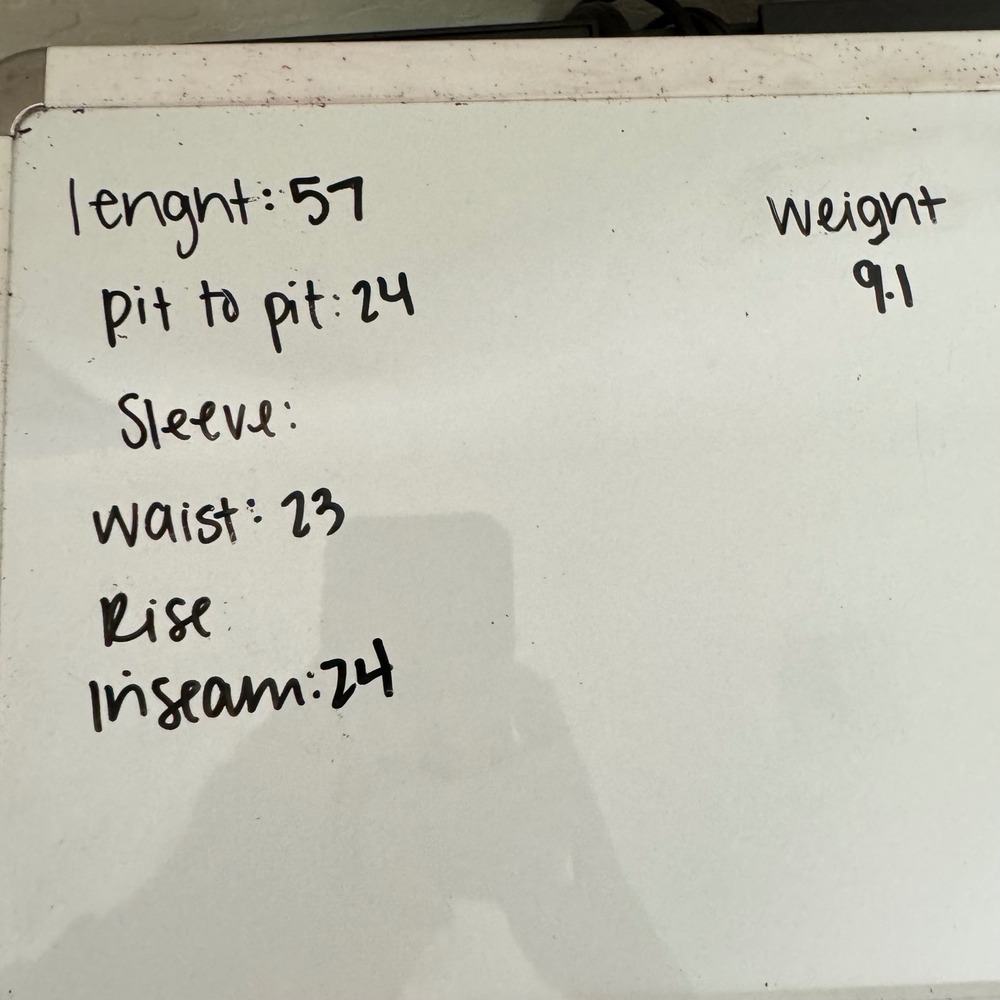 lengnt: 57
pit to pit: 24
Sleeve:
waist: 23
Rise
Inseam: 24
weignt
9.1